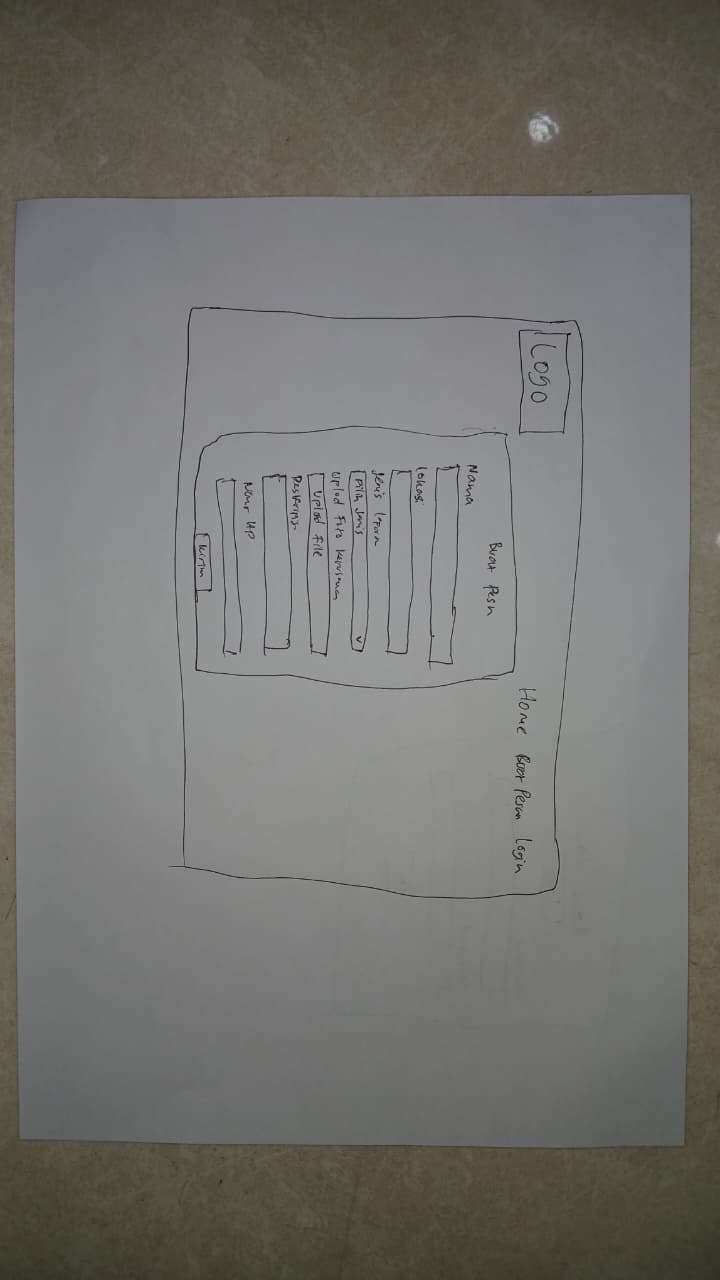 Logo
Home Buat Pesan Login
Buat Pesn
Nama
Lokasi
Jenis
Pilih Jenis
Uplod Foto Kerusakan
Uplod File
Deskripsi
Nomr HP
Kirim